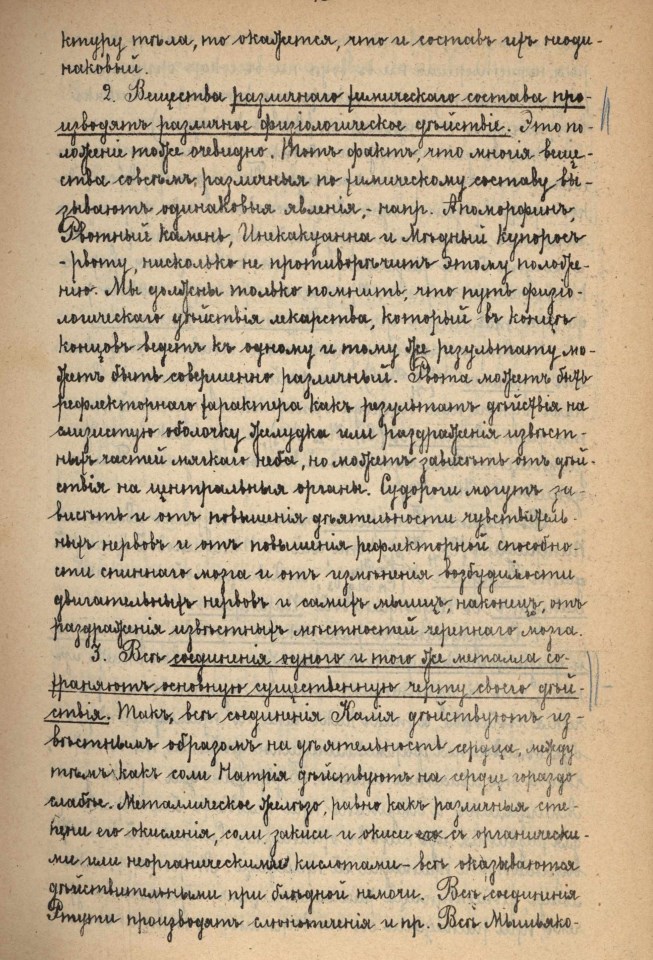 ктуру тѣла, то окажется, что и составъ ихъ неоди-
наковый.
2. Вещества различнаго химическаго состава про-
изводятъ различное физіологическое дѣйствіе. Это по-
ложеніе тоже очевидно. Тотъ фактъ, что многія веще-
ства совсѣмъ различныя по химическому составу вы-
зываютъ одинаковыя явленія,- напр. Апоморфинъ,
Рвотный камень, Ипекакуанна и Мѣдный Купоросъ
- рвоту, нисколько не противорѣчитъ этому положе-
нію. Мы должны только помнить, что путь физіо-
логическаго дѣйствія лекарства, который въ концѣ
концовъ ведетъ къ одному и тому же результату мо-
жетъ быть совершенно различный. Рвота можетъ быть
рефлекторнаго характера какъ результатъ дѣйствія на
слизистую оболочку желудка или раздраженія извѣст-
ныхъ частей мягкаго неба, но можетъ зависѣть отъ дѣй-
ствія на центральныя органы. Судороги могутъ за-
висѣть и отъ повышенія дѣятельности чувствитель-
ныхъ нервовъ и отъ повышенія рефлекторной способно-
сти спиннаго мозга и отъ измѣненія возбудимости
двигательныхъ нервовъ и самихъ мышцъ, наконецъ, отъ
раздраженія извѣстныхъ мѣстностей черепнаго мозга.
3. Всѣ соединенія одного и того же металла со-
храняютъ основную существенную черту своего дѣй-
ствія. Такъ, всѣ соединенія Калія дѣйствуютъ из-
вѣстнымъ образомъ на дѣятельность сердца, между
тѣмъ какъ соли Натрія дѣйствуютъ на сердце гораздо
слабѣе. Металлическое желѣзо, равно какъ различныя сте-
пени его окисленія, соли закиси и окиси съ органически-
ми или неорганическими кислотами - всѣ оказываются
дѣйствительными при блѣдной немочи. Всѣ соединенія
Ртути производятъ слюнотеченія и пр. Всѣ Мышьяко-